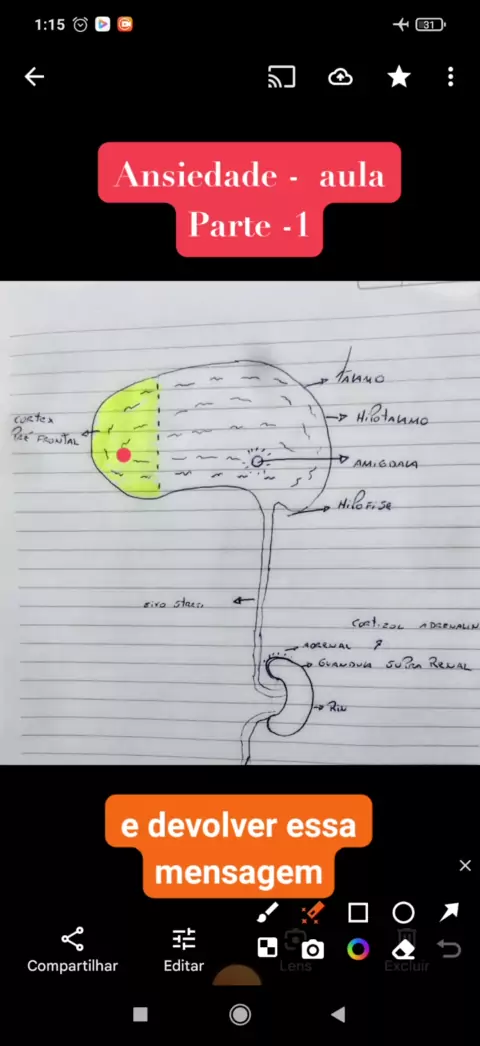 1:15
31
Ansiedade - aula
Parte -1
TALAMO
CORTEX
PRÉ FRONTAL
HIPOTALAMO
AMIGDALA
HIPOFISE
EIXO STRESS
CORTIZOL ADRENALIN
ADRENAL ?
GLANDULA SUPRA RENAL
RIN
e devolver essa
mensagem
Compartilhar
Editar
Lens
Excluir